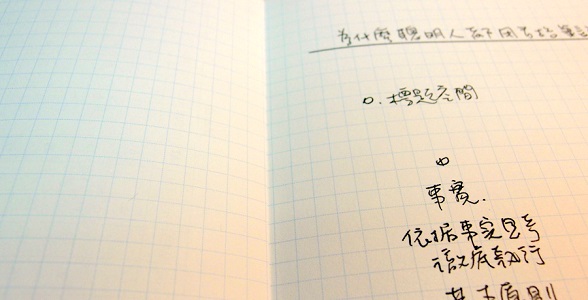 為什麼聰明人都用方格筆記
0. 標題空間
事實.
依据事实思考
徹底執行
基本原則